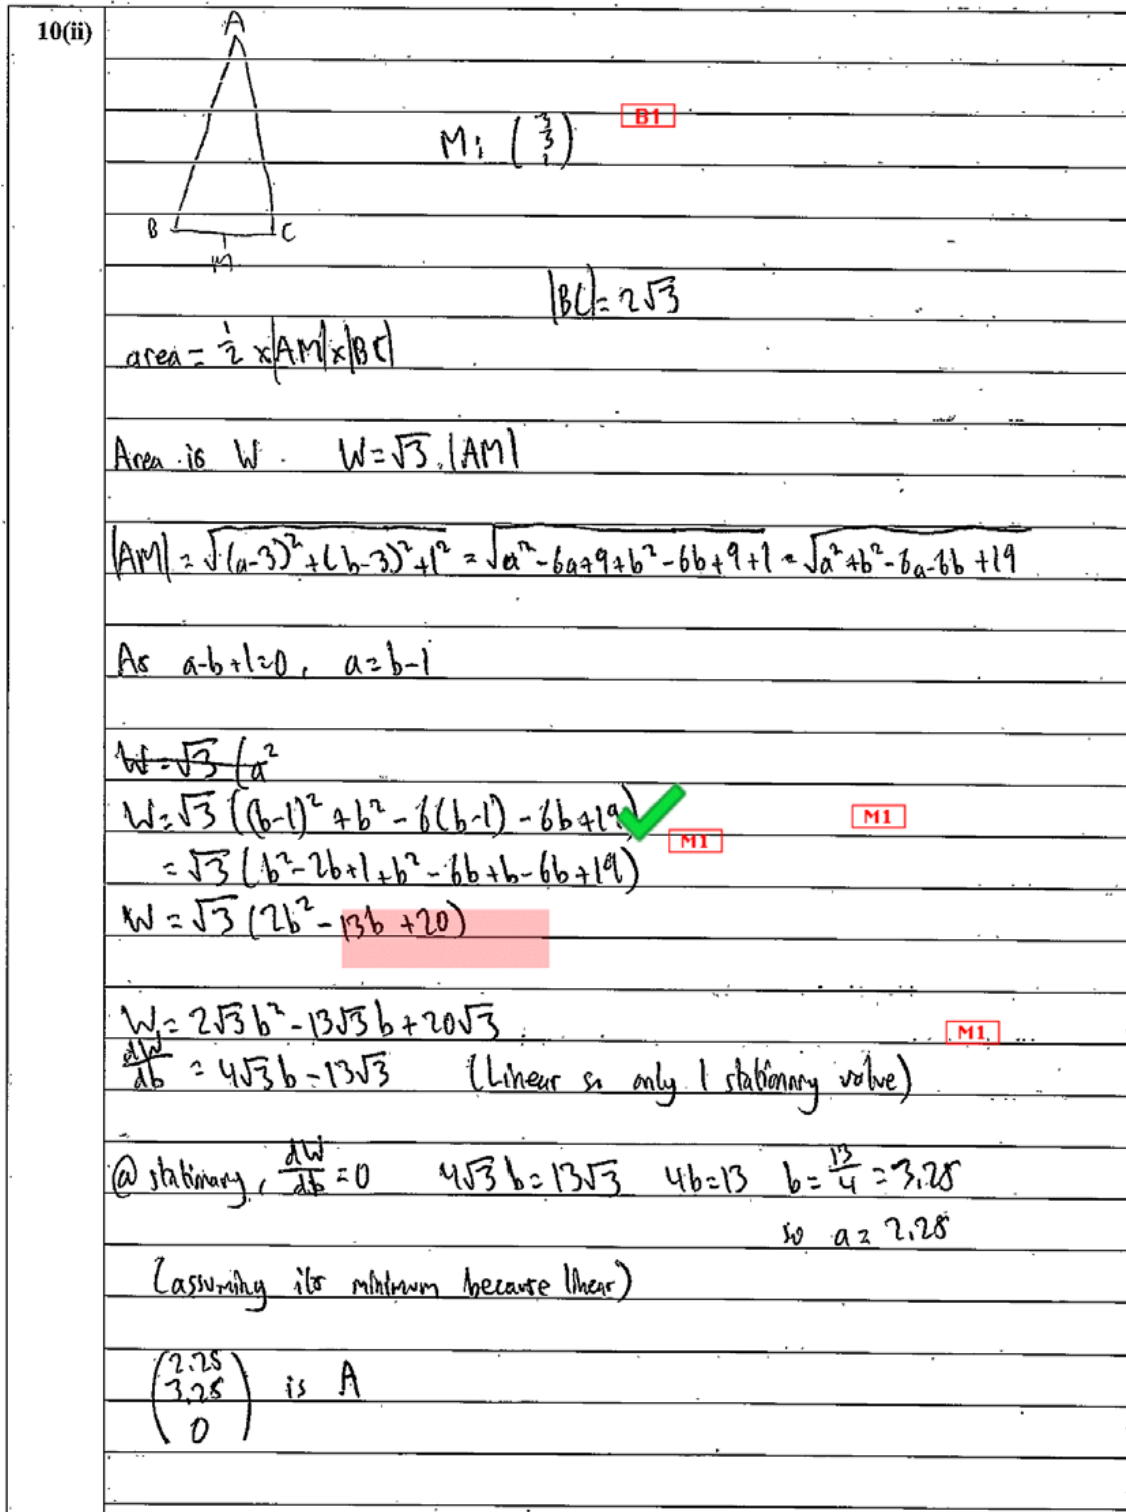 10(ii)
A
B1
M: (3 3 1)
B C
M
|BC| = 2√3
area = 1/2 × |AM| × |BC|
Area is W. W = √3 . |AM|
|AM| = √((a-3)² + (b-3)² + 1²) = √(a² - 6a + 9 + b² - 6b + 9 + 1) = √(a² + b² - 6a - 6b + 19)
As a-b+1=0, a=b-1
W = √3 (a²
W = √3 ((b-1)² + b² - 6(b-1) - 6b + 19) M1
M1
= √3 (b² - 2b + 1 + b² - 6b + b - 6b + 19)
W = √3 (2b² - 13b + 20)
W = 2√3 b² - 13√3 b + 20√3 M1
dW/db = 4√3 b - 13√3 (Linear so only 1 stationary valve)
@ stationary, dW/db = 0 4√3 b = 13√3 4b = 13 b = 13/4 = 3.25
so a = 2.25
(assuming its minimum because linear)
(2.25 3.25 0) is A